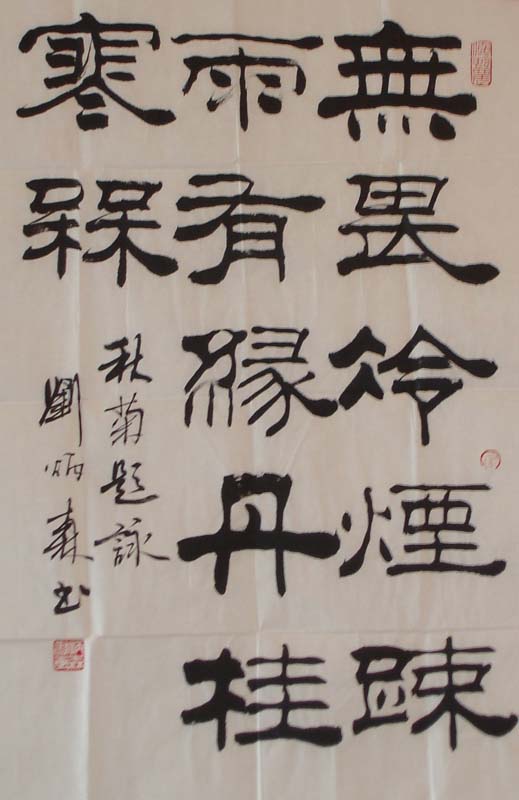 無畏冷煙踈
雨有緣丹桂
寒槑
秋菊題詠
劉炳森书